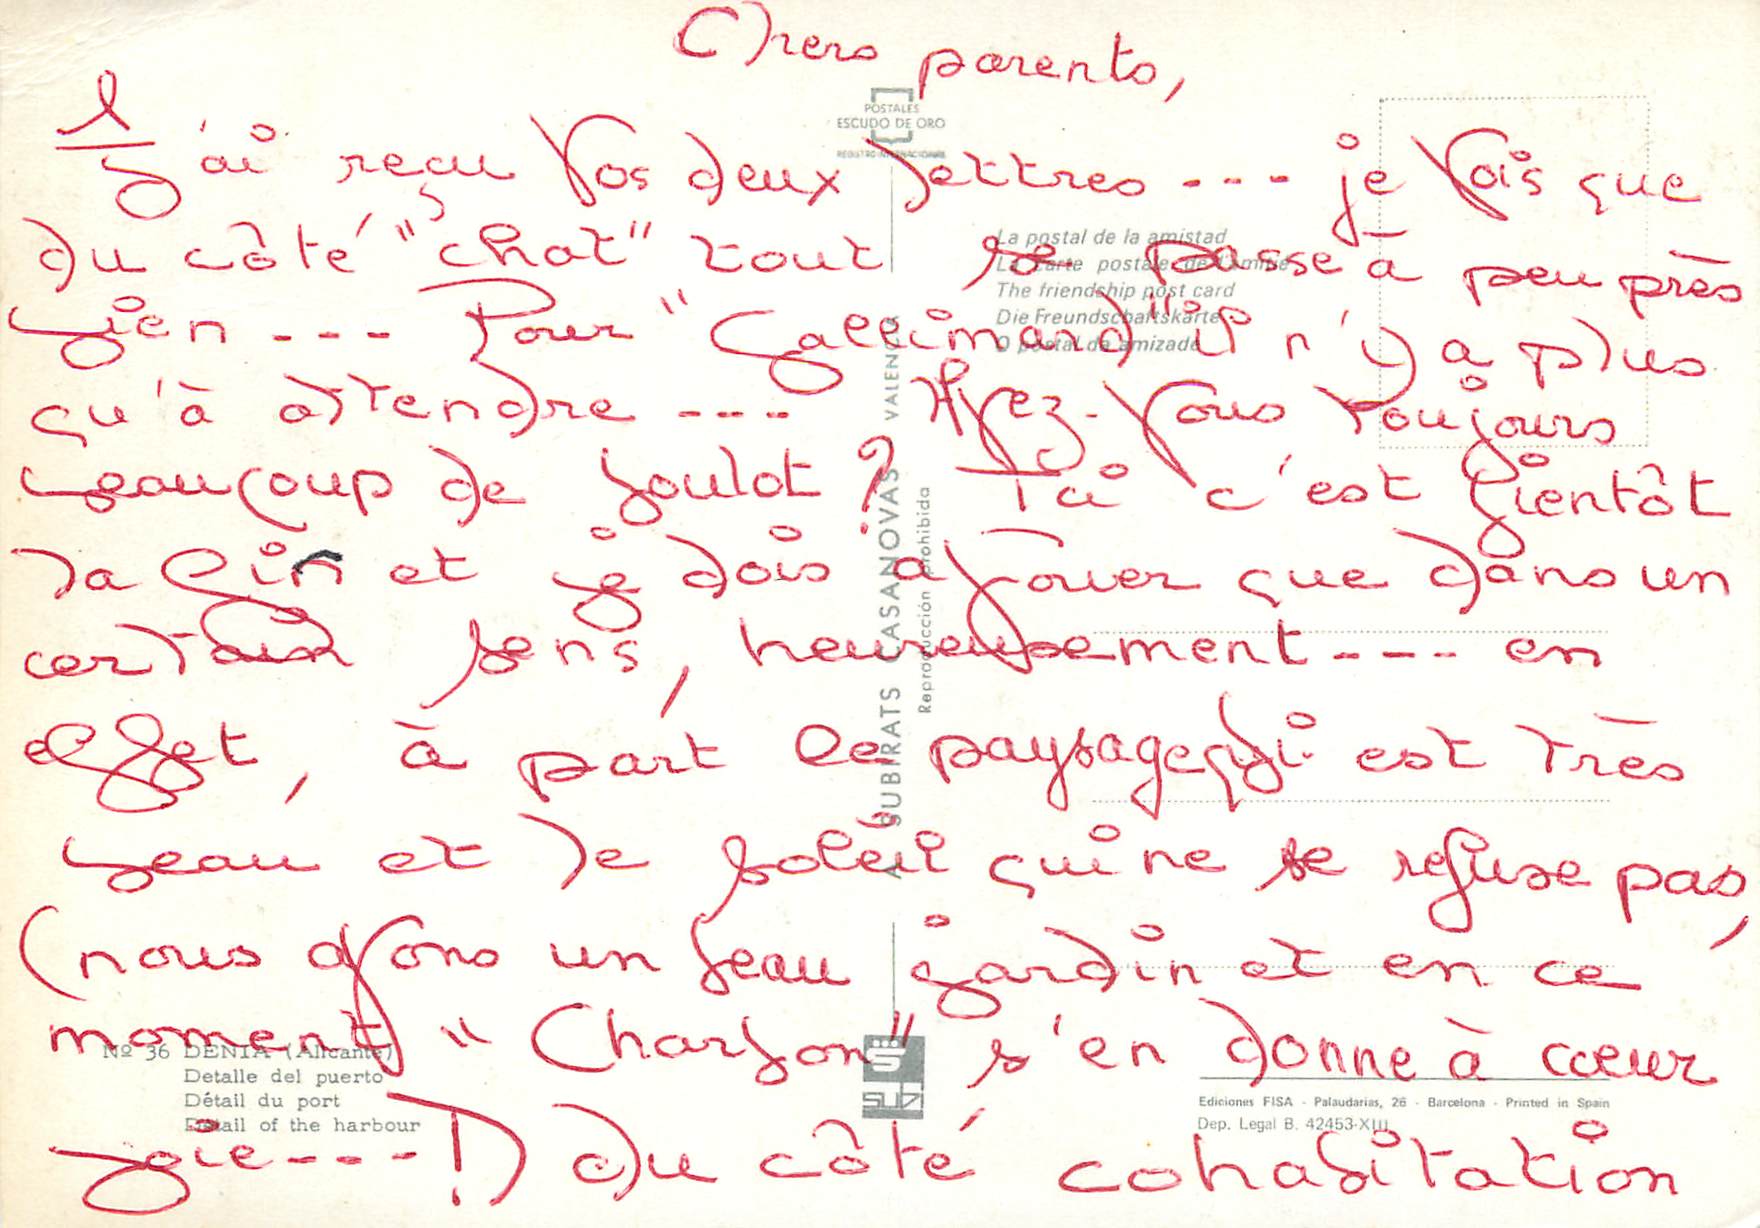 Chers parents,
1
J'ai reçu vos deux lettres --- je vois que
du côté "chat" tout se passe à peu près
bien --- Pour "Gallimard" il n'y a plus
qu'à attendre --- Avez-vous toujours
beaucoup de boulot ? Ici c'est bientôt
la fin et je dois avouer que dans un
certain sens, heureusement --- en
effet, à part le paysage qui est très
beau et le soleil qui ne se refuse pas,
(nous avons un beau jardin et en ce
moment "Charbon" s'en donne à cœur
joie --- !) du côté cohabitation
POSTALES
ESCUDO DE ORO
REGISTRO INTERNACIONAL
La postal de la amistad
La carte postale de l'amitié
The friendship post card
Die Freundschaftskarte
O postal da amizade
SUBIRATS CASANOVAS VALENCIA
Reproducción prohibida
Nº 36 DENIA (Alicante)
Detalle del puerto
Détail du port
Detail of the harbour
Ediciones FISA - Palaudarias, 26 - Barcelona - Printed in Spain
Dep. Legal B. 42453-XIII